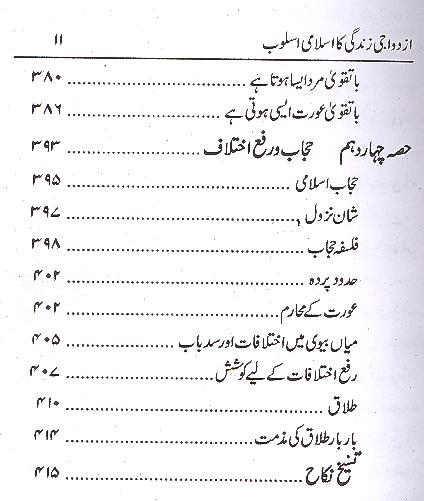 ازدواجی زندگی کا اسلامی اسلوب ۱۱
باتقویٰ مرد ایسا ہوتا ہے ۳۸۰
باتقویٰ عورت ایسی ہوتی ہے ۳۸۶
حصہ چہاردہم حجاب و رفع اختلاف ۳۹۳
حجاب اسلامی ۳۹۵
شان نزول ۳۹۷
فلسفہ حجاب ۳۹۸
حدود پردہ ۴۰۲
عورت کے محارم ۴۰۲
میاں بیوی میں اختلافات اور سدباب ۴۰۵
رفع اختلافات کے لیے کوشش ۴۰۷
طلاق ۴۱۰
بار بار طلاق کی مذمت ۴۱۴
تنسیخ نکاح ۴۱۵